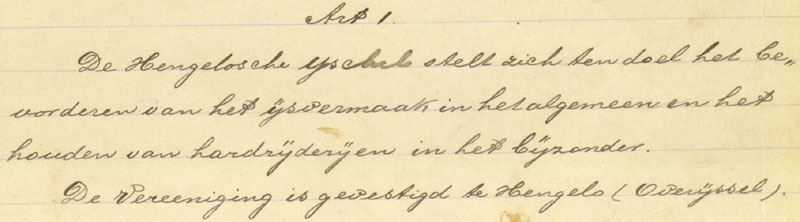 Art 1.
De Hengelosche ysclub stelt zich ten doel het be„
vorderen van het ijsvermaak in het algemeen en het
houden van hardrijderijen in het bijzonder.
De Vereeniging is gevestigd te Hengelo (Overijssel).